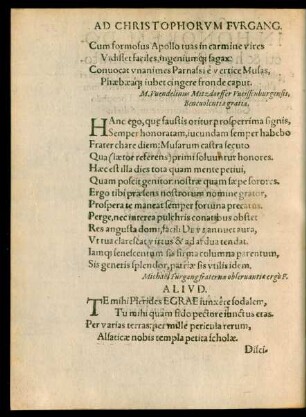 AD CHRISTOPHORVM FVRGANG.
Cum formosus Apollo tuas in carmine vires
Vidisset faciles, ingeniumq; sagax:
Convocat vnanimes Parnassi è vertice Musas,
Phœbæaq; iubet cingere fronde caput.
M. Vuendelinus Mitzdorffer Vueissenburgensis,
Benevolentiæ gratia.
HAnc ego, quę faustis oritur prosperrima signis,
Semper honoratam, iucundam semper habebo
Frater chare diem: Musarum castra secuto
Qua (lætor referens) primi soluuntur honores.
Hæc est illa dies tota quam mente petiui,
Quam poscit genitor: nostræ quam sæpe sorores.
Ergo tibi præsens nostrorum nomine grator,
Prospera te maneat semper fortuna precatus.
Perge, nec interea pulchris conatibus obstet
Res angusta domi, facili DEVS annuet aura,
Vt tua clarescat virtus & ad ardua tendat.
Iamq; senescentum sis firma columna parentum,
Sis generis splendor, patriæ sis vtilis idem.
Michaël Furgang fraternæ observantiæ ergò F.
ALIVD.
TE mihi Pierides EGRAE iunxêre sodalem,
Tu mihi quàm fido pectore iunctus eras.
Per varias terras: per mille pericula rerum,
Alsaticæ nobis templa petita scholæ.
Disci-